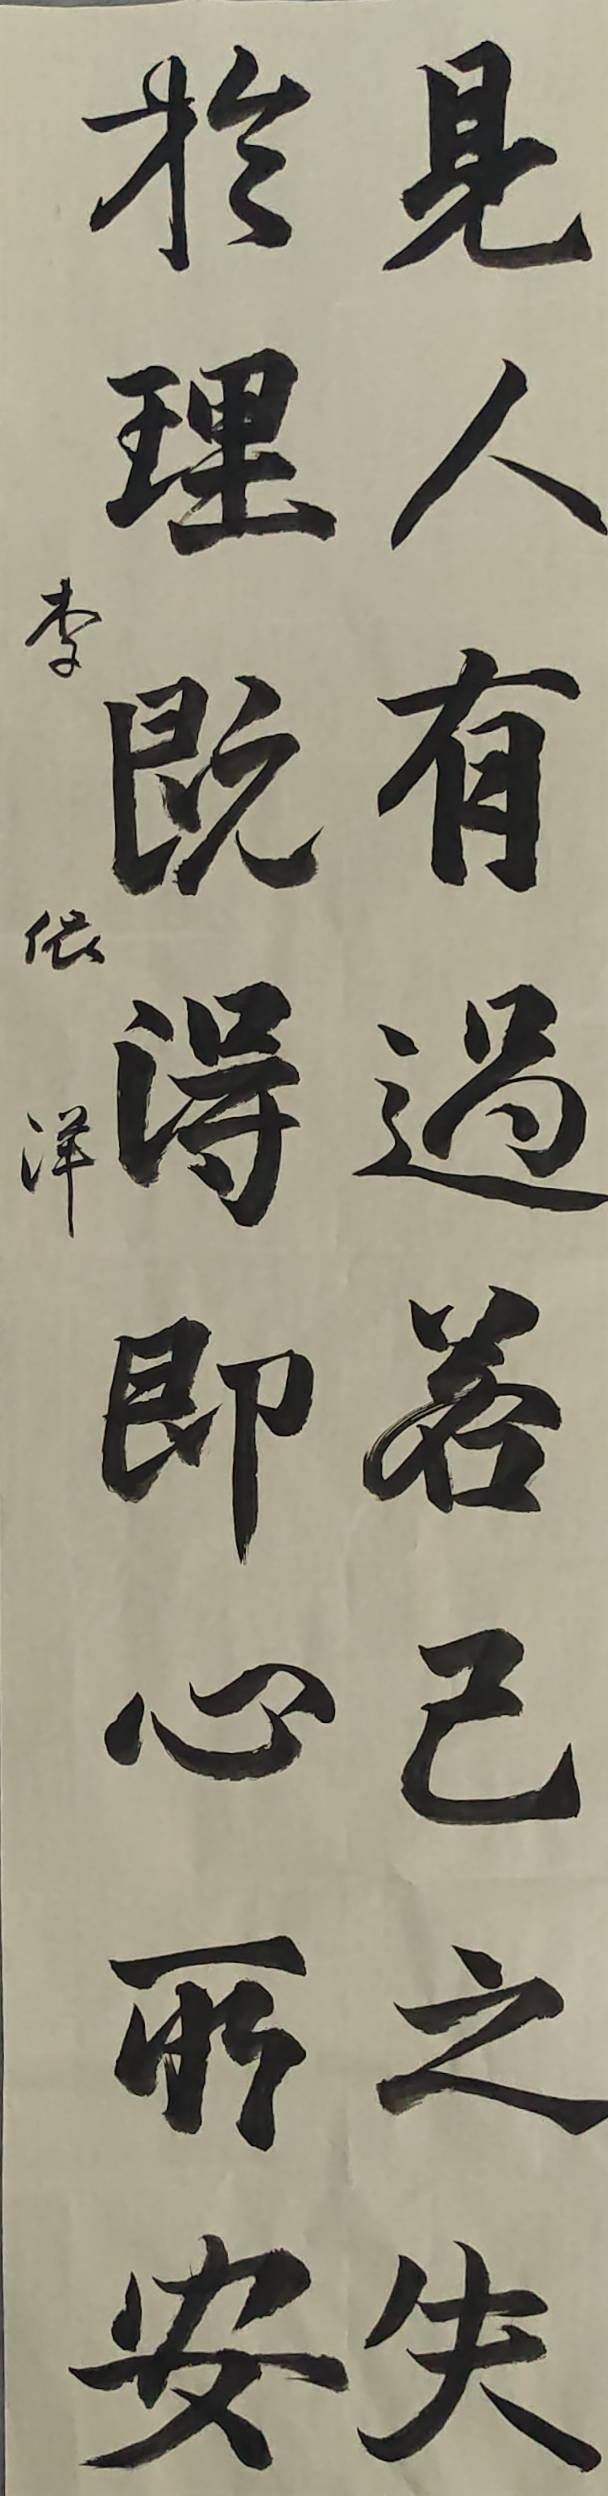 見人有過若己之失
於理既得即心所安
李依洋